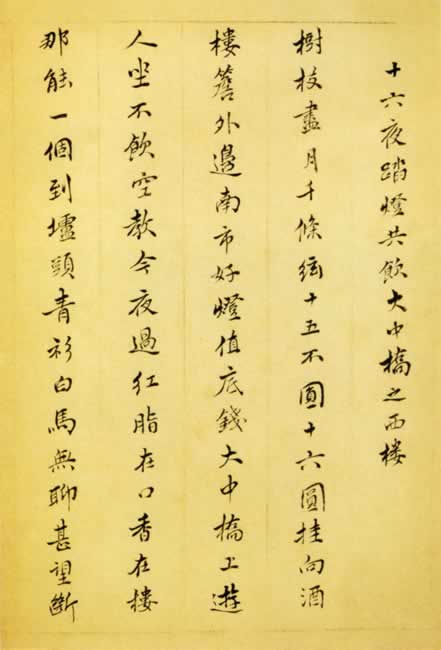 十六夜踏燈共飲大中橋之西楼
樹枝盡月千條絃十五不圓十六圓挂向酒
樓簷外邊南市好燈值底錢大中橋上遊
人坐不飲空教今夜過紅脂在口香在樓
那能一個到壚頭青衫白馬無聊甚望斷